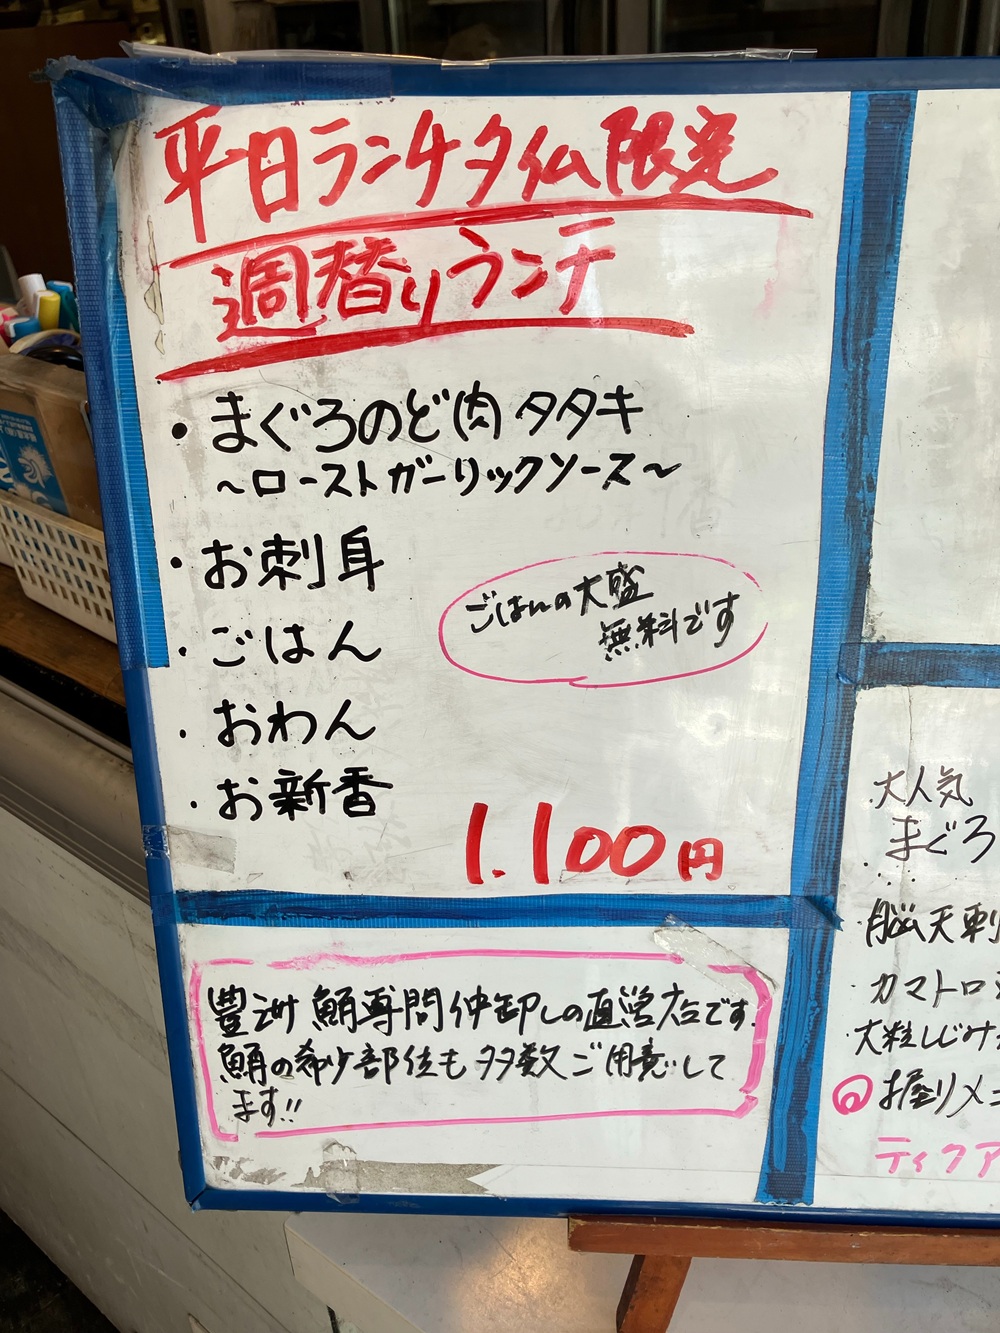 平日ランチタイム限定
週替りランチ
・まぐろのど肉タタキ
〜ローストガーリックソース〜
・お刺身
・ごはん
・おわん
・お新香
ごはんの大盛
無料です
1.100円
豊洲 鮪専門仲卸しの直営店です。
鮪の希少部位も多数ご用意して
ます!!
大人気
・まぐろ
・脳天刺
・カマトロ
・大粒しじみ
お昼メニ
ティクア